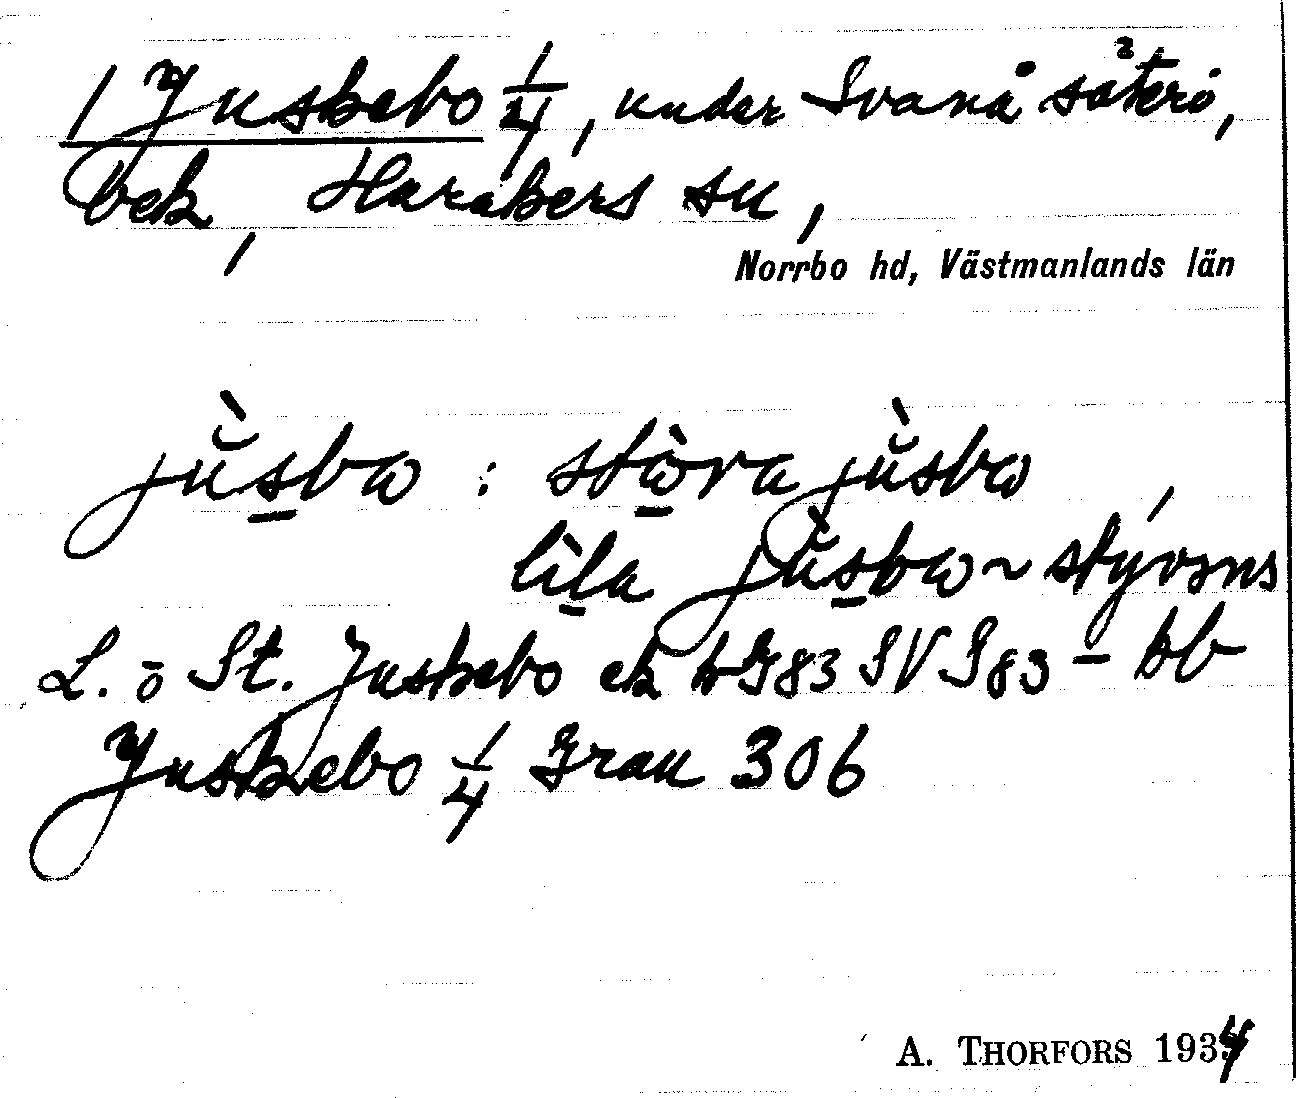 1 Juskebo 1/4, under Svanå säteri,
bek, Haråkers sn,
Norrbo hd, Västmanlands län
jùsbω : stὼra jùsbω,
lìla jùsbω ~
L. o St. Juskebo ek 4G83 SV G83 – bb
Juskebo 1/4 Grau 306
A. THORFORS 1934